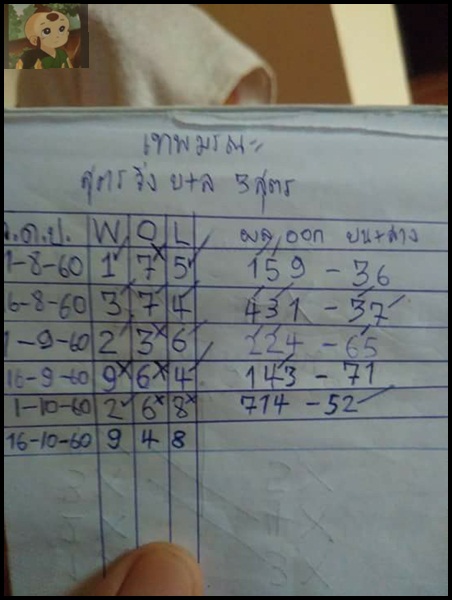 เทพมรณะ
สูตร วิ่ง บ+ล 3 สูตร
ว.ด.ป. W O L ผล ออก บน+ล่าง
1-8-60 1 7 5 159 - 36
16-8-60 3 7 4 431 - 37
1-9-60 2 3 6 224 - 65
16-9-60 9 6 4 143 - 71
1-10-60 2 6 8 714 - 52
16-10-60 9 4 8